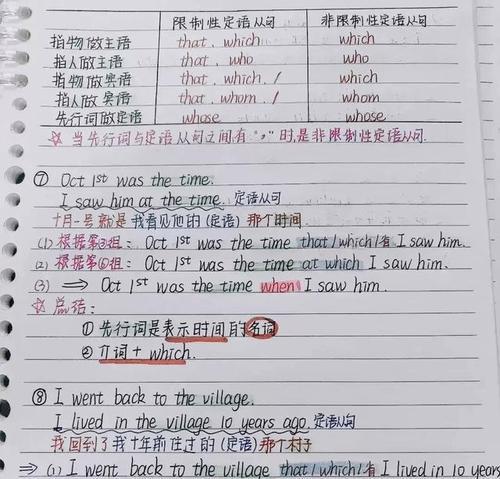 限制性定语从句 非限制性定语从句
指物做主语 that、which which
指人做主语 that、who who
指物做宾语 that、which、/ which
指人做宾语 that、whom、/ whom
先行词做定语 whose whose
☆ 当先行词与定语从句之间有“,”时,是非限制性定语从句.
⑦ Oct 1st was the time.
I saw him at the time. 定语从句
十月一号就是我看见他的(定语)那个时间
(1) 根据第③组: Oct 1st was the time that/which/省 I saw him.
(2) 根据第⑥组: Oct 1st was the time at which I saw him.
(3) ⇒ Oct 1st was the time when I saw him.
☆ 总结:
① 先行词是表示时间的名词
② 介词+which.
⑧ I went back to the village.
I lived in the village 10 years ago. 定语从句
我回到了我十年前住过的(定语)那个村子
⇒ (1) I went back to the village that/which/省 I lived in 10 years